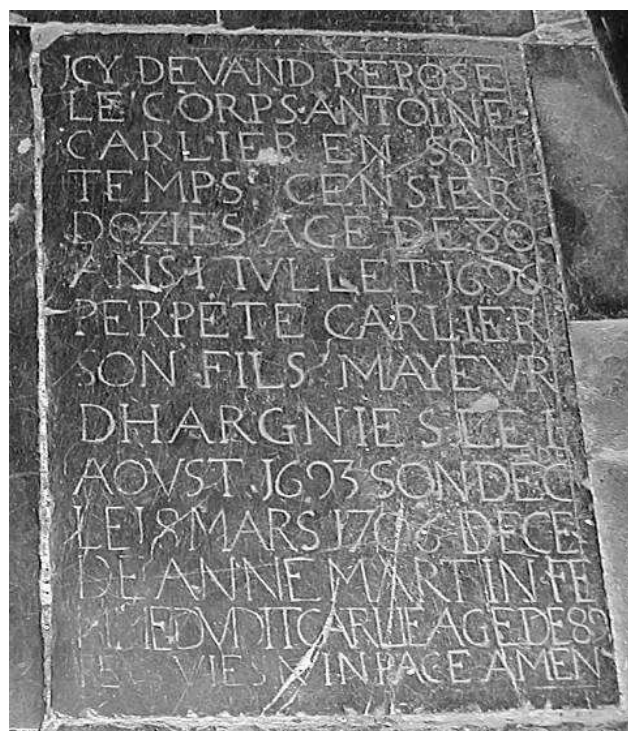 JCY DEVAND REPOSE
LE CORPS ANTOINE
CARLIER EN SON
TEMPS CENSIER
DOZIES AGE DE 80
ANS I IVLLET J696
PERPETE CARLIER
SON FILS MAYEVR
DHARGNIES LE I
AOVST . J693 SON DEC
LE 18 MARS 1706 DECE
DE ANNE MARTIN FE
DVDIT CARLIE AGE DE 89
IN PACE AMEN